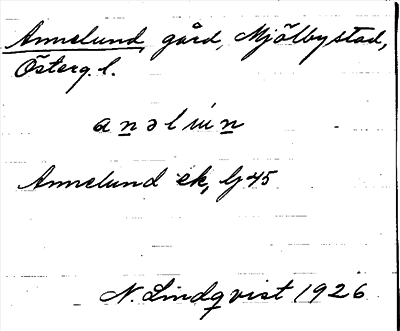 Annelund, gård, Mjölby stad,
Österg. l.
anəlún
Annelund ek, Gj 45
N. Lindqvist 1926